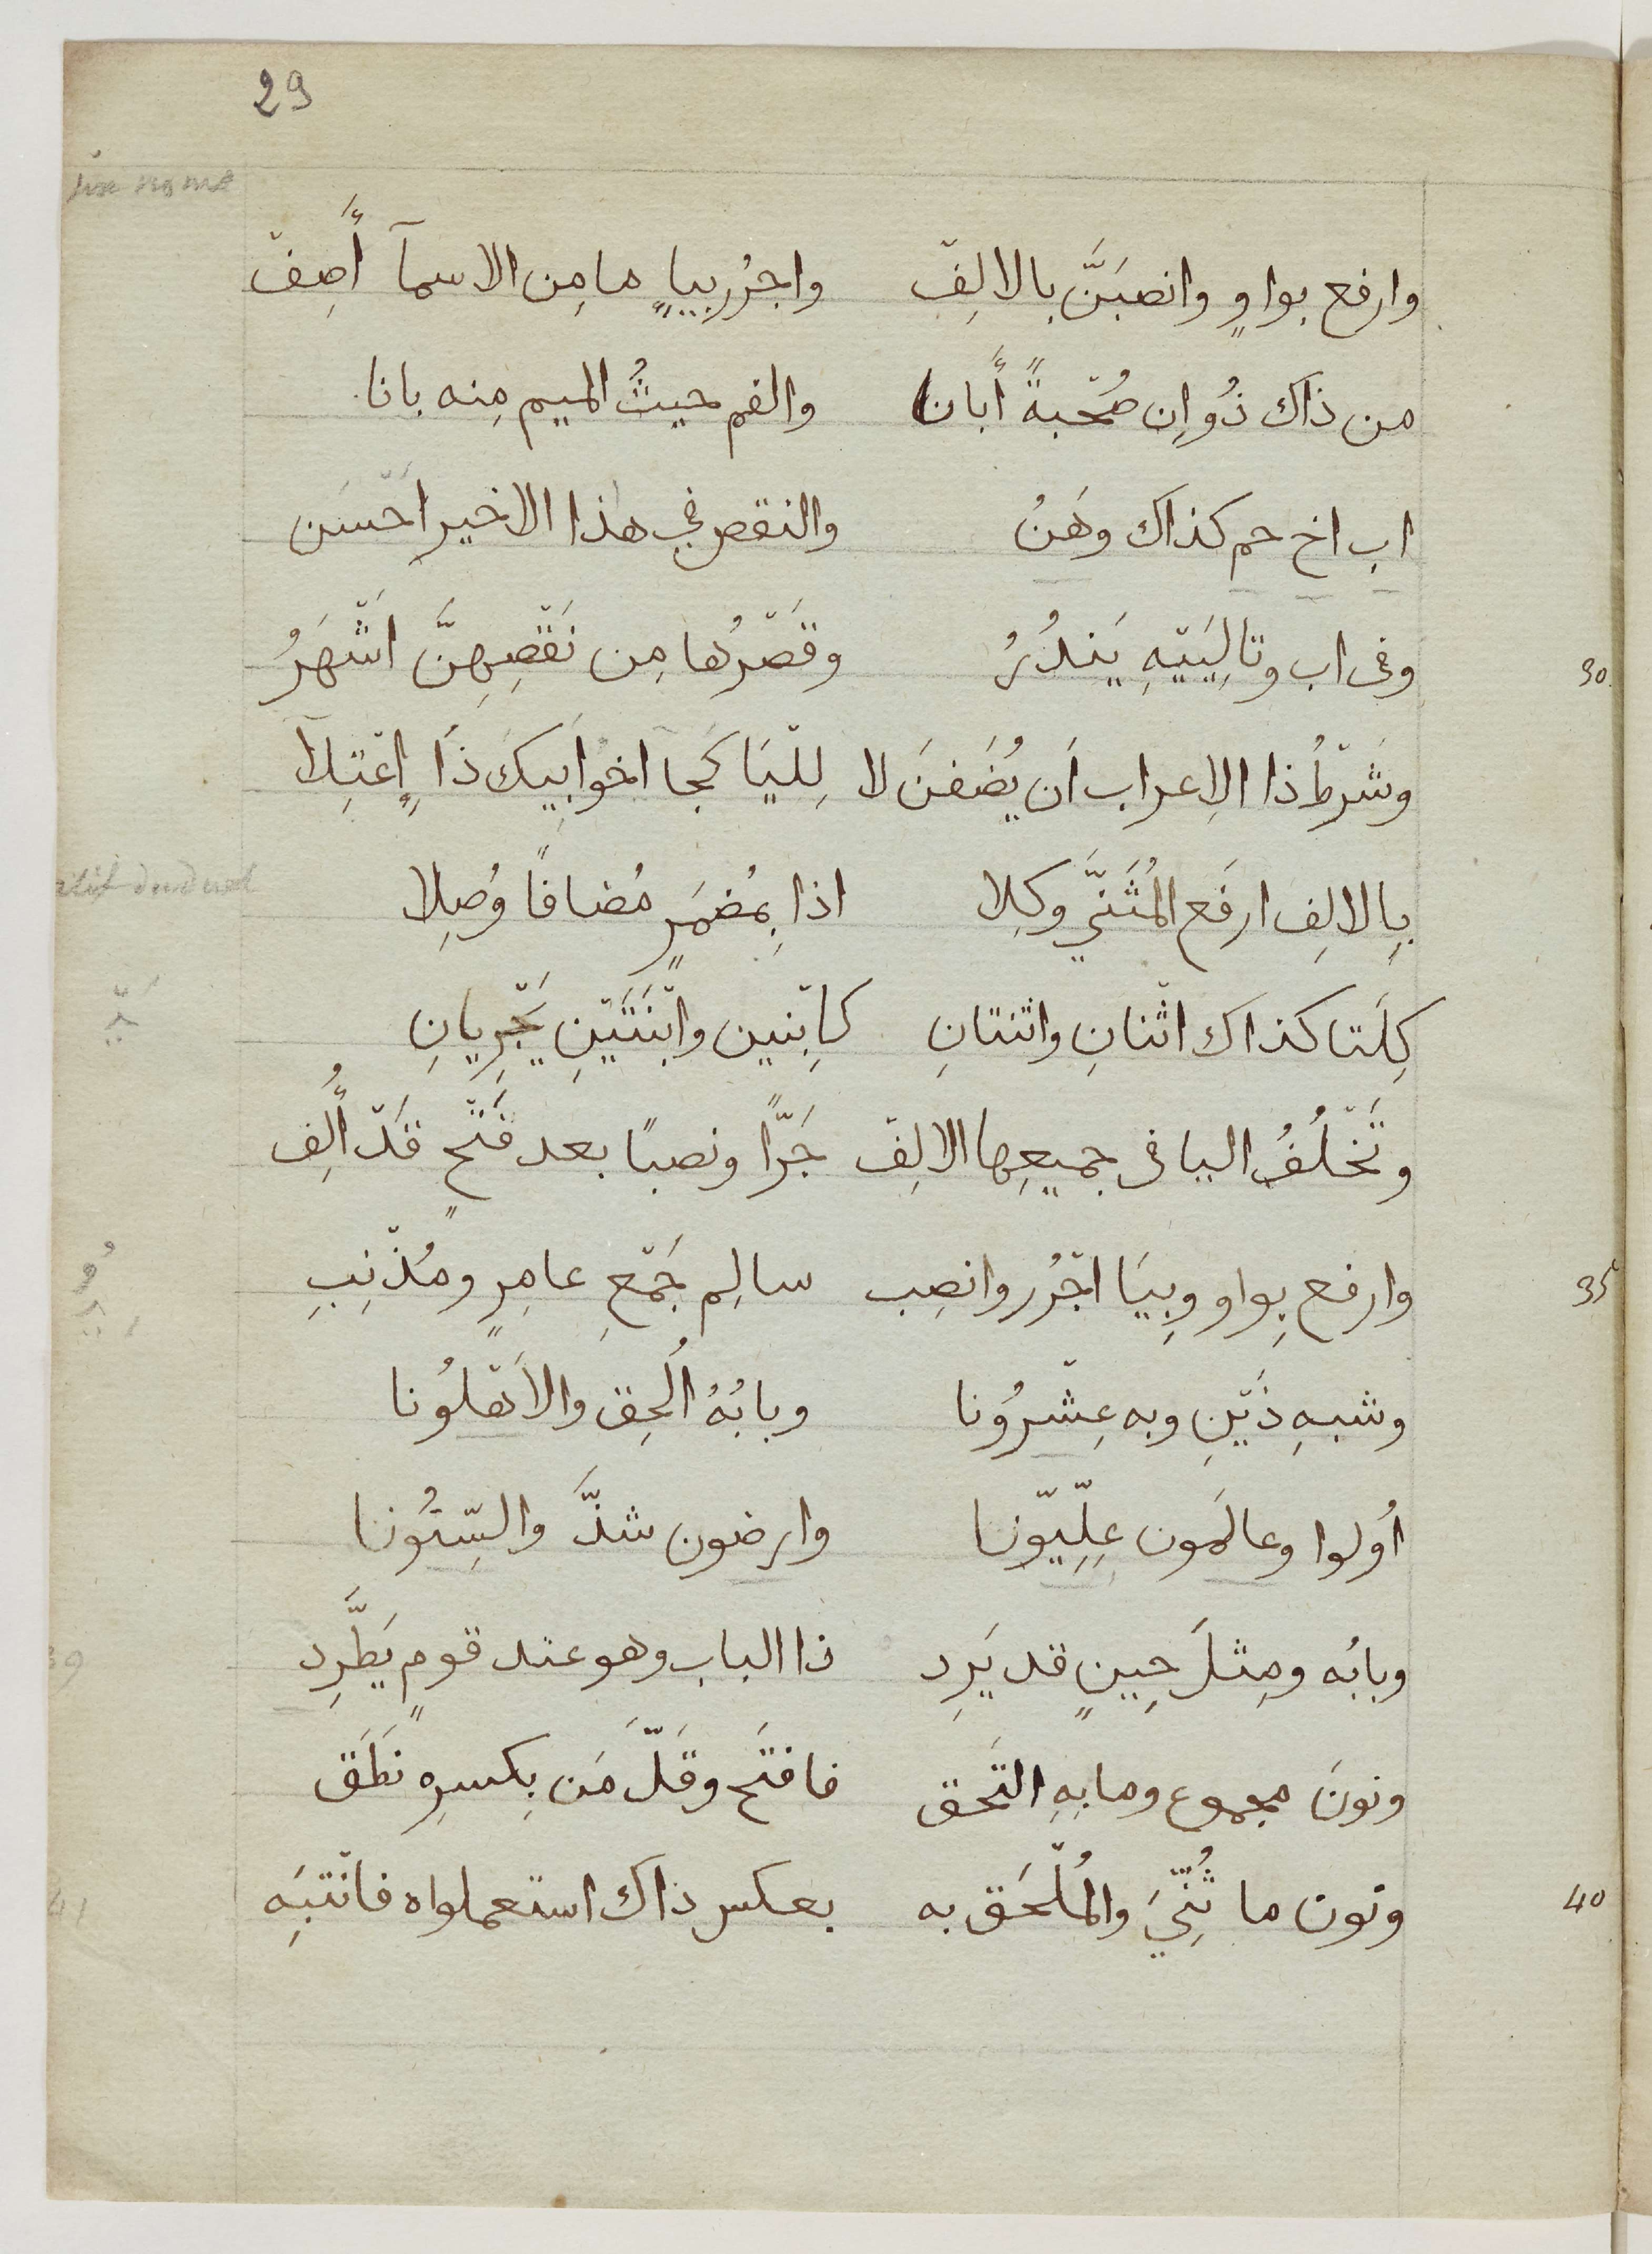 29
وارفع بواوٍ وانصبَنَّ بالالِفْ واجرُر بياٍ ما مِن الاسمآ أَصِفْ
من ذاك ذُو اِن صُحْبةً أَبانا والفم حيثُ الميم مِنه بانا
اب اخ حم كذاك وهَنُ والنقص في هذا الاخير احْسَن
30 وفى اب وتالِيَيْهِ يَندُرُ وقَصْرُها مِن نَقْصِهِنَّ اشْهَرُ
وشَرْطُ ذا الاِعراب اَن يُضَفنَ لا لِلْيَا كَجا اخُوا بِيكَ ذَا اِعْتِلآ
بِالالِفِ ارفَع المُثَنَّي وكِلا اذا بِمُضمَرٍ مُضافًا وُصِلا
كِلَتا كذاك اثْنانِ واثنتانِ كابْنين وابْنَتَيْنِ يَجْرِيانِ
وتَخْلُفُ اليا فى جميعِها الالِفْ جَرًّا ونصبًا بعد فَتْحٍ قَدْ أُلِف
35 وارفع بِواو وبِيَا اجْرُر وانصِب سالِم جَمْعِ عامِرٍ ومُذْنِبِ
وشبهِ ذَيْنِ وبه عِشْرُونا وبابُهُ اُلحِق والاَهْلُونا
اُولوا وعالَمون عِلِّيّونا وارضون شذَّ والسِّنُونا
وبابُه ومِثلَ حِينٍ قد يَرِد ذا الباب وهو عند قومٍ يَطَّرِد
ونونَ مجموع وما بِهِ التَحق فافتَح وقَلّ مَن بِكسرِه نطَق
40 ونون ما ثُنِّيَ والمُلْحَق به بعكس ذاك استعملواه فانْتبَِه
39
41